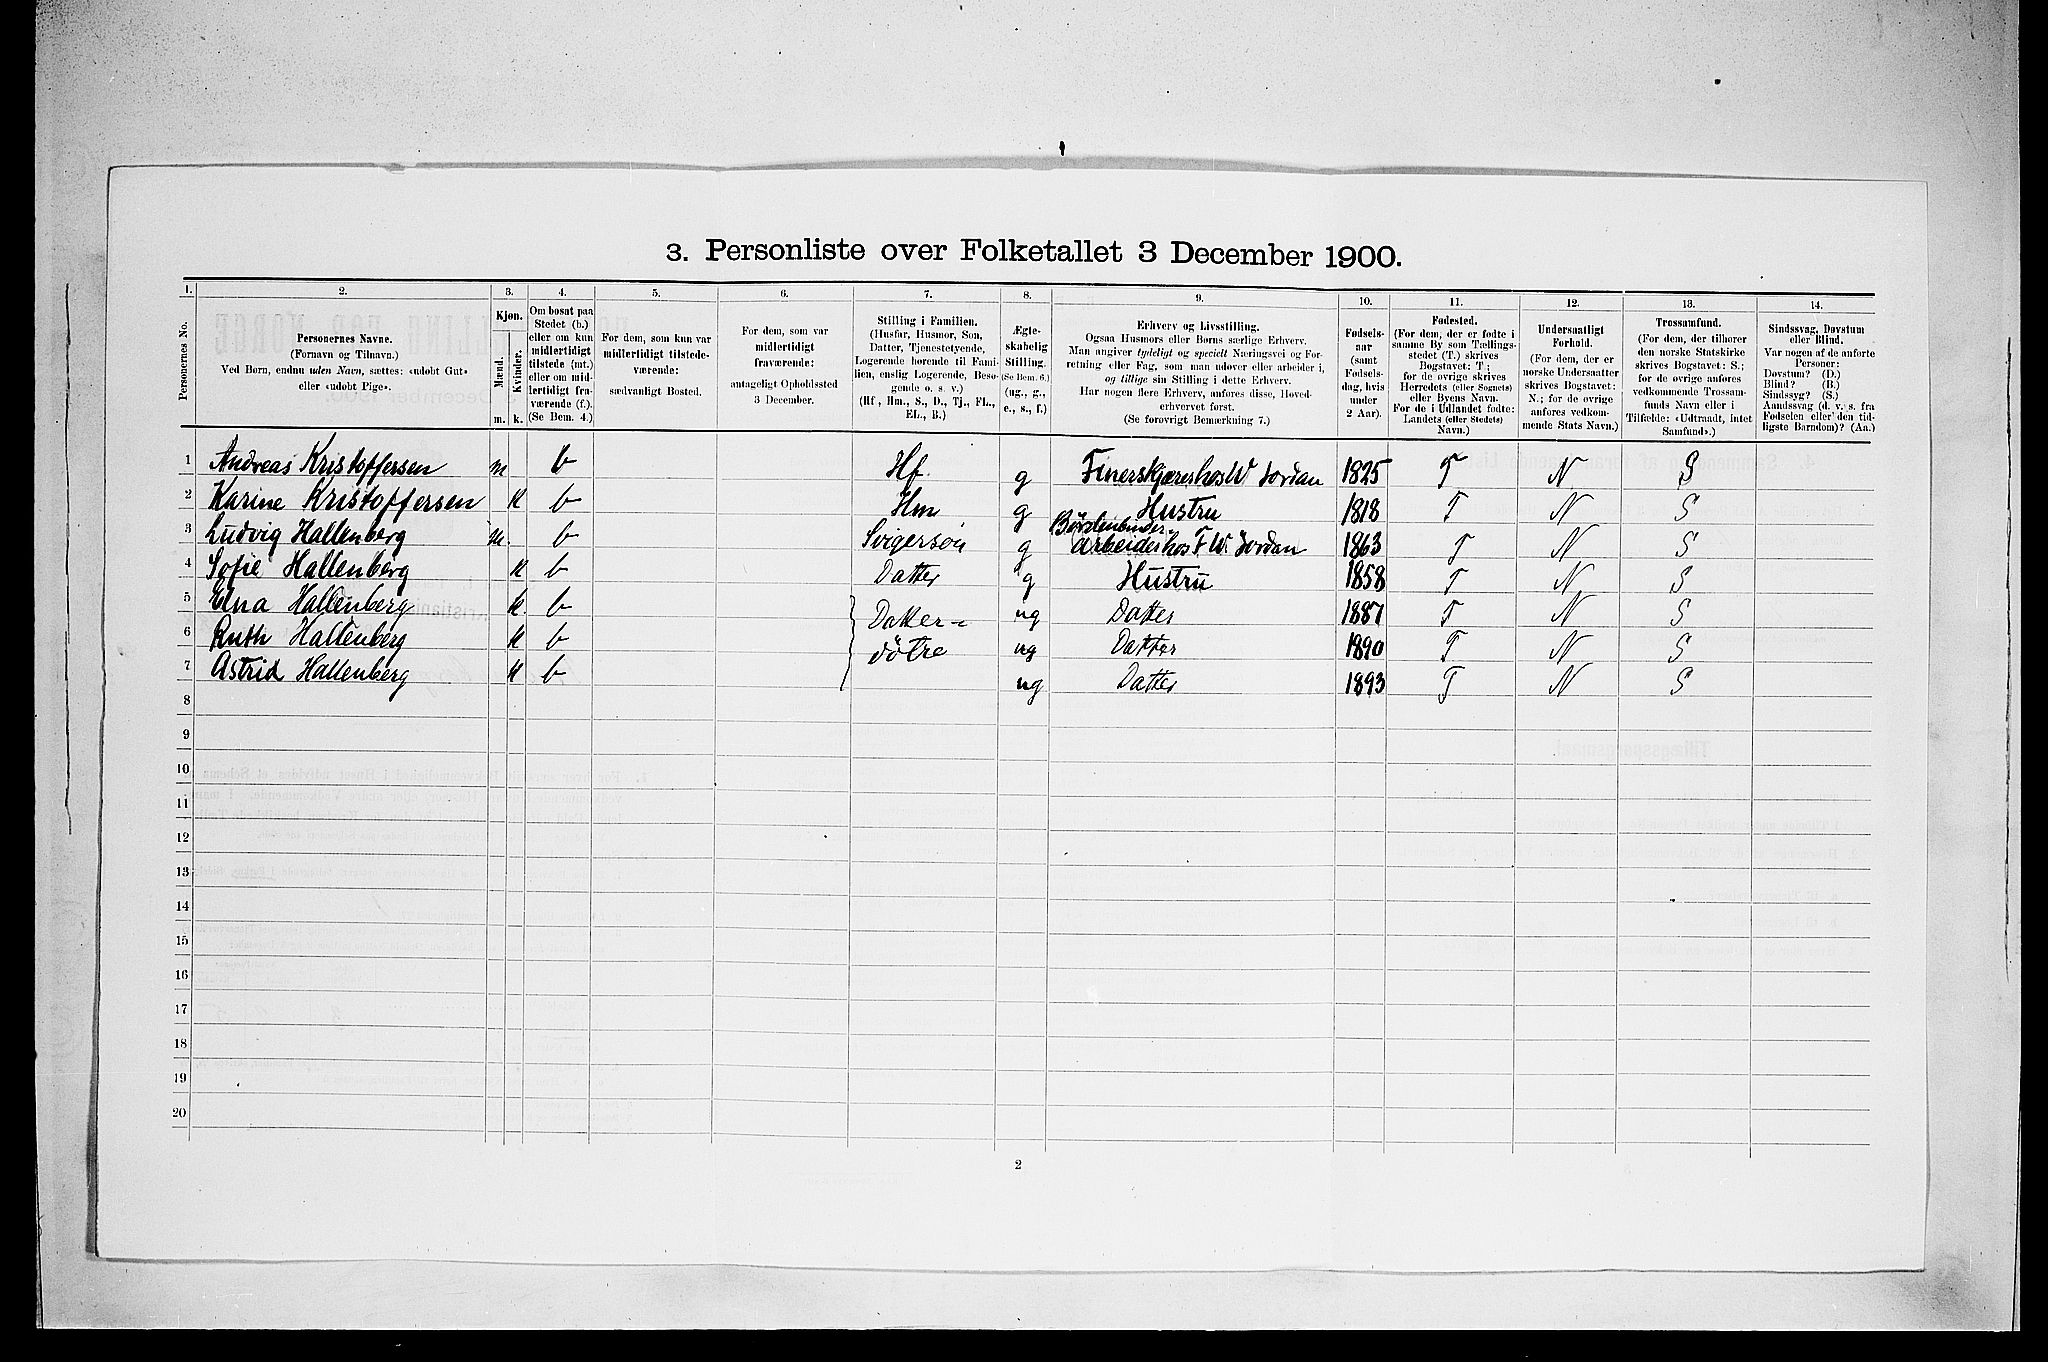 3. Personliste over Folketallet 3 December 1900.
1. 2. 3. 4. 5. 6. 7. 8. 9. 10. 11. 12. 13. 14.
Personernes No.
Personernes Navne.
(Fornavn og Tilnavn.)
Ved Børn, endnu uden Navn, sættes: «udobt Gut»
eller «udobt Pige».
Kjøn.
Mænd.
Kvinder.
m. k.
Om bosat paa
Stedet (b.)
eller om kun
midlertidigt
tilstede (mt.)
eller om mid-
lertidigt fra-
værende (f.).
(Se Bem. 4.)
For dem, som kun var
midlertidigt tilstede-
værende:
sædvanligt Bosted.
For dem, som var
midlertidigt
fraværende:
antageligt Opholdssted
3 December.
Stilling i Familien.
(Husfar, Husmor, Søn,
Datter, Tjenestetyende,
Logerende hørende til Fami-
lien, enslig Logerende, Besø-
gende o. s. v.)
(Hf., Hm., S., D., Tj., FL.,
EL., B.)
Ægte-
skabelig
Stilling.
(Se Bem. 6.)
(ug., g.,
e., s., f.)
Erhverv og Livsstilling.
Ogsaa Husmors eller Børns særlige Erhverv.
Man angiver tydeligt og specielt Næringsvei og For-
retning eller Fag, som man udøver eller arbeider i,
og tillige sin Stilling i dette Erhverv.
Har nogen flere Erhverv, anføres disse, Hoved-
erhvervet først.
(Se forøvrigt Bemærkning 7.)
Fødsels-
aar
(samt
Fødsels-
dag, hvis
under
2 Aar).
Fødested.
(For dem, der er fødte i
samme By som Tællings-
stedet (T.) skrives
Bogstavet: T.;
for de øvrige skrives
Herredets (eller Sognets)
eller Byens Navn.
For de i Udlandet fødte:
Landets (eller Stedets)
Navn.)
Undersaatligt
Forhold.
(For dem, der er
norske Undersaatter
skrives Bogstavet:
N.; for de øvrige
anføres vedkom-
mende Stats Navn.)
Trossamfund.
(For dem, der tilhører
den norske Statskirke
skrives Bogstavet: S.;
for de øvrige anføres
vedkommende Trossam-
funds Navn eller i
Tilfælde: «Udtraadt, intet
Samfund».)
Sindssvag, Døvstum
eller Blind.
Var nogen af de anførte
Personer:
Døvstum? (D.)
Blind? (B.)
Sindssyg? (S.)
Aandssvag (d. v. s. fra
Fødselen eller den tid-
ligste Barndom)? (Aa.)
1 Andreas Kristoffersen m b Hf. g Finerskjærer hos W Jordan 1825 T N S
2 Karine Kristoffersen k b Hm g Hustru 1818 T N S
3 Ludvig Hallenberg m. b Svigersön g Börstenbinder-
arbeider hos F W. Jordan 1863 T N S
4 Sofie Hallenberg k b Datter g Hustru 1858 T N S
5 Elna Hallenberg k. b Datter- ug Datter 1887 T N S
6 Ruth Hallenberg k b dötre ug Datter 1890 T N S
7 Astrid Hallenberg k b ug Datter 1893 T N S
8
9
10
11
12
13
14
15
16
17
18
19
20
2